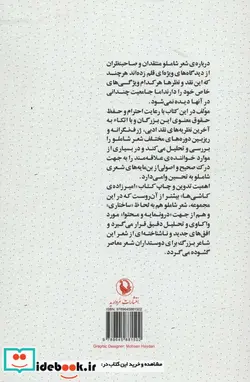 درباره‌ی شعر شاملو منتقدان و صاحبنظران
از دیدگاه‌های ویژه‌ای قلم زده‌اند هرچند
که این نقد و نظرها هرکدام ویژگی‌های
خاص خود را دارند اما جامعیت چندانی
در آنها دیده نمی‌شود.
مولف در این کتاب با رعایت احترام و حفظ
حقوق معنوی این بزرگان و با اتکاء به
آخرین نظریه‌های نقد ادبی، ژرفنگرانه و
ریزبین دوره‌های مختلف شعر شاملو را
بررسی و تحلیل می‌کند و در بسیاری از
موارد خواننده‌ی علاقه‌مند را به جهت
درک صحیح و اصولی از بن‌مایه‌های شعری
شاملو به تحسین وامی‌دارد.
اهمیت تدوین و چاپ کتاب «امیرزاده‌ی
کاشی‌ها» بیشتر از آن‌روست که در این
مجموعه، شعر شاملو هم به لحاظ «ساختاری»
و هم از جهت «درونمایه و محتوا» مورد
واکاوی و تحلیل دقیق قرار می‌گیرد و
افق‌های جدید و ناشناخته‌ای از شعر این
شاعر بزرگ برای دوستداران شعر معاصر
گشوده می‌گردد.
انتشارات مروارید
Graphic Designer: Mohsen Hasibi
مشاهده و خرید این کتاب در:
idebook.ir